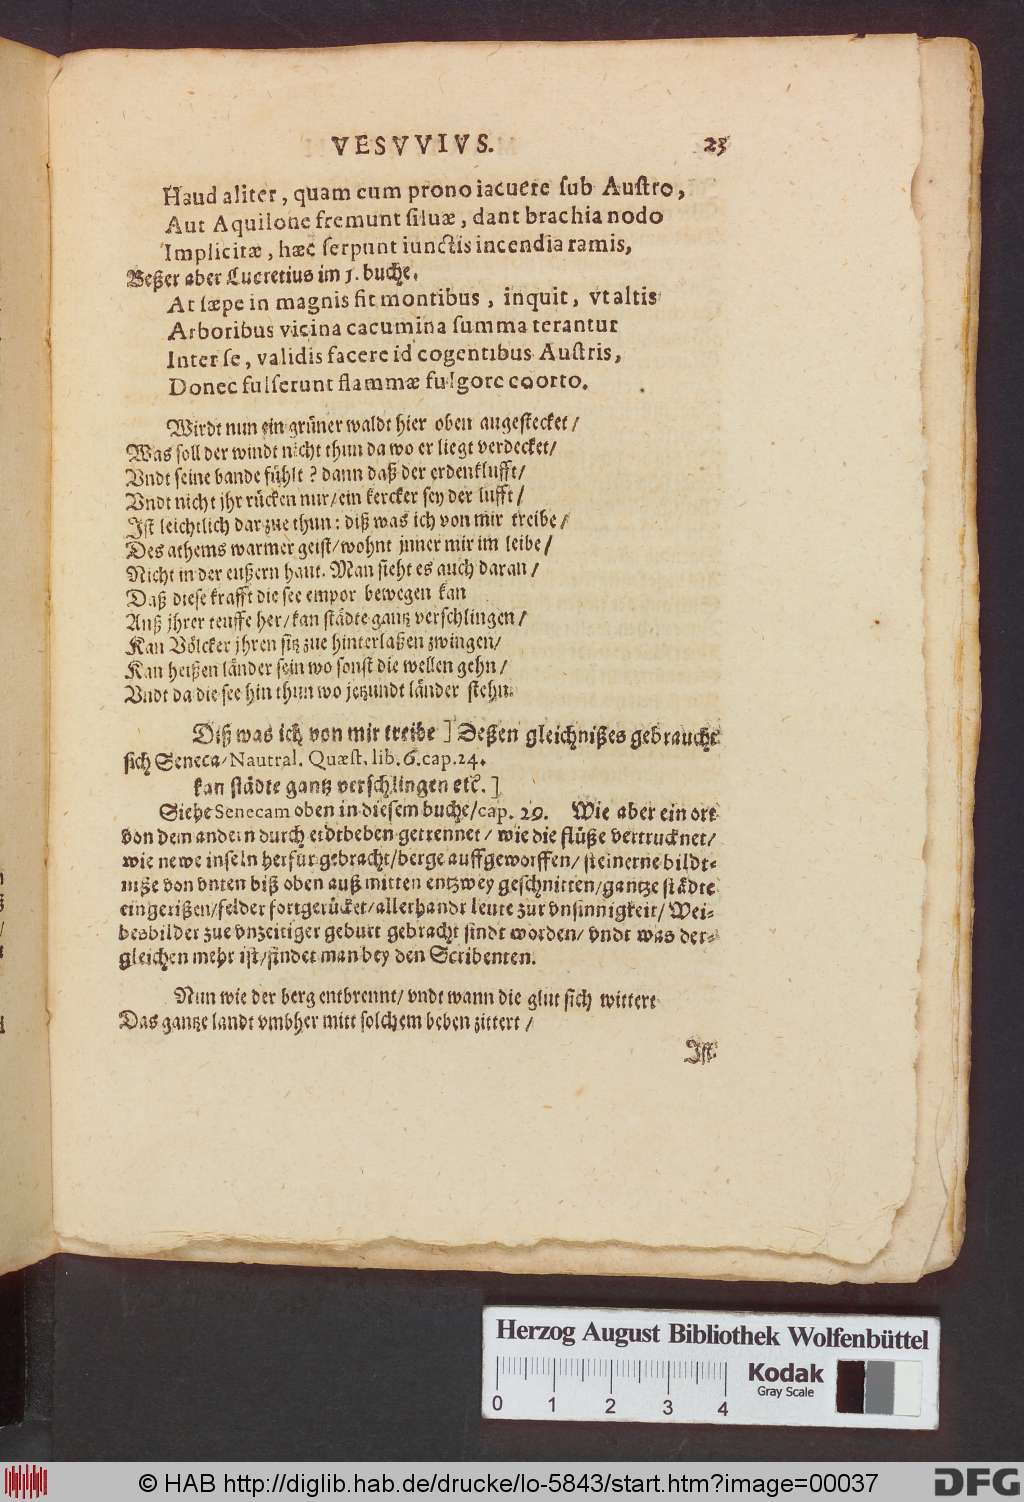 VESVVIVS. 23
Haud aliter, quam cum prono iacuere sub Austro,
Aut Aquilone fremunt siluæ, dant brachia nodo
Implicitæ, hæc serpunt iunctis incendia ramis,
Beßer aber Lucretius im 1. buche.
At sæpe in magnis fit montibus, inquit, vt altis
Arboribus vicina cacumina summa terantur
Inter se, validis facere id cogentibus Austris,
Donec fulserunt flammæ fulgore coorto.
Wirdt nun ein grüner waldt hier oben angestecket/
Was soll der windt nicht thun da wo er liegt verdecket/
Vndt seine bande fühlt? dann daß der erdenklufft/
Vndt nicht jhr rücken nur/ein kercker sey der lufft/
Ist leichtlich dar zue thun: diß was ich von mir treibe/
Des athems warmer geist/wohnt jnner mir im leibe/
Nicht in der eußern haut. Man sieht es auch daran/
Daß diese krafft die see empor bewegen kan
Auß jhrer teuffe her/kan städte gantz verschlingen/
Kan Völcker jhren sitz zue hinterlaßen zwingen/
Kan heißen länder sein wo sonst die wellen gehn/
Vndt da die see hin thun wo jetzundt länder stehn.
Diß was ich von mir treibe] Deßen gleichnißes gebraucht
sich Seneca/Nautral. Quæst. lib. 6. cap. 24.
kan städte gantz verschlingen etc.]
Siehe Senecam oben in diesem buche/cap. 29. Wie aber ein ort
von dem andern durch erdtbeben getrennet/ wie die flüße vertrucknet/
wie newe inseln herfür gebracht/berge auffgeworffen/ steinerne bildt-
niße von vnten biß oben auß mitten entzwey geschnitten/gantze städte
eingerißen/felder fortgerücket/allerhandt leute zur vnsinnigkeit/ Wei-
besbilder zue vnzeitiger geburt gebracht sindt worden/ vndt was der-
gleichen mehr ist/findet man bey den Scribenten.
Nun wie der berg entbrennt/ vndt wann die glut sich wittert
Das gantze landt vmbher mitt solchem beben zittert/
Ist
Herzog August Bibliothek Wolfenbüttel
Kodak
Gray Scale
0 1 2 3 4
© HAB http://diglib.hab.de/drucke/lo-5843/start.htm?image=00037
DFG